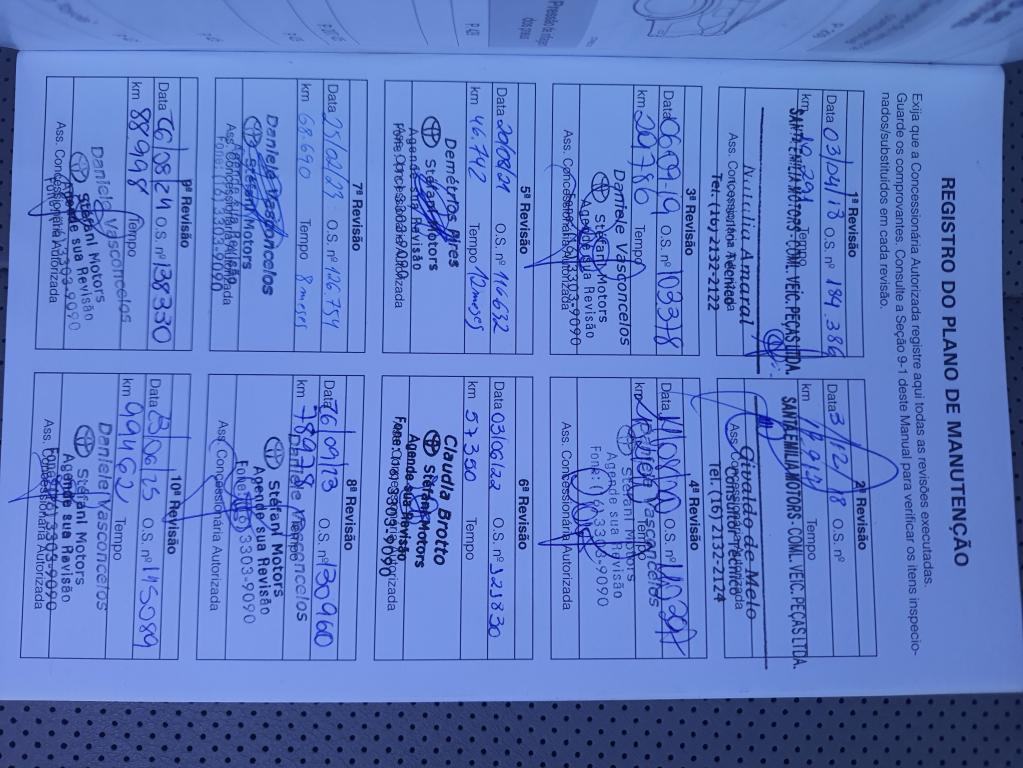 REGISTRO DO PLANO DE MANUTENÇÃO
Exija que a Concessionária Autorizada registre aqui todas as revisões executadas.
Guarde os comprovantes. Consulte a Seção 9-1 deste Manual para verificar os itens inspecio-
nados/substituídos em cada revisão.
1ª Revisão
Data 03/04/18 O.S. nº 184.386
km Tempo
SANTA EMILIA MOTORS - COML. VEIC. PEÇAS LTDA.
Amaral
Técnico
Ass. Concessionária Autorizada
Tel. (16) 2132-2122
2ª Revisão
Data 3/12/18 O.S. nº
km Tempo
SANTA EMILIA MOTORS - COML. VEIC. PEÇAS LTDA.
Givaldo de Melo
Consultor Técnico
Ass. Concessionária Autorizada
Tel. (16) 2132-2124
3ª Revisão
Data O.S. nº 103378
km 29786 Tempo
Daniele Vasconcelos
Stéfani Motors
Agende sua Revisão
Ass. Concessionária Autorizada
3303-9090
4ª Revisão
Data O.S. nº
km Tempo
Daniele Vasconcelos
Stéfani Motors
Agende sua Revisão
Fone: (16) 3303-9090
Ass. Concessionária Autorizada
5ª Revisão
Data 20/08/21 O.S. nº 116632
km 46.742 Tempo 12 meses
Demétrios Pires
Stéfani Motors
Agende sua Revisão
Ass. Concessionária Autorizada
6ª Revisão
Data 03/06/22 O.S. nº 121830
km 57350 Tempo
Claudia Brotto
Stéfani Motors
Agende sua Revisão
Ass. Concessionária Autorizada
7ª Revisão
Data 25/02/23 O.S. nº 126.754
km 68.690 Tempo 8 meses
Daniele Vasconcelos
Stéfani Motors
Agende sua Revisão
Ass. Concessionária Autorizada
Fone: (16) 3303-9090
8ª Revisão
Data 16/09/23 O.S. nº 130960
km 78978 Tempo
Daniele Vasconcelos
Stéfani Motors
Agende sua Revisão
Fone: (16) 3303-9090
Ass. Concessionária Autorizada
9ª Revisão
Data 16/08/24 O.S. nº 138330
km 88998 Tempo
Daniele Vasconcelos
Stéfani Motors
Agende sua Revisão
3303-9090
Ass. Concessionária Autorizada
10ª Revisão
Data 23/06/25 O.S. nº 145089
km 99462 Tempo
Daniele Vasconcelos
Stéfani Motors
Agende sua Revisão
Fone: (16) 3303-9090
Ass. Concessionária Autorizada